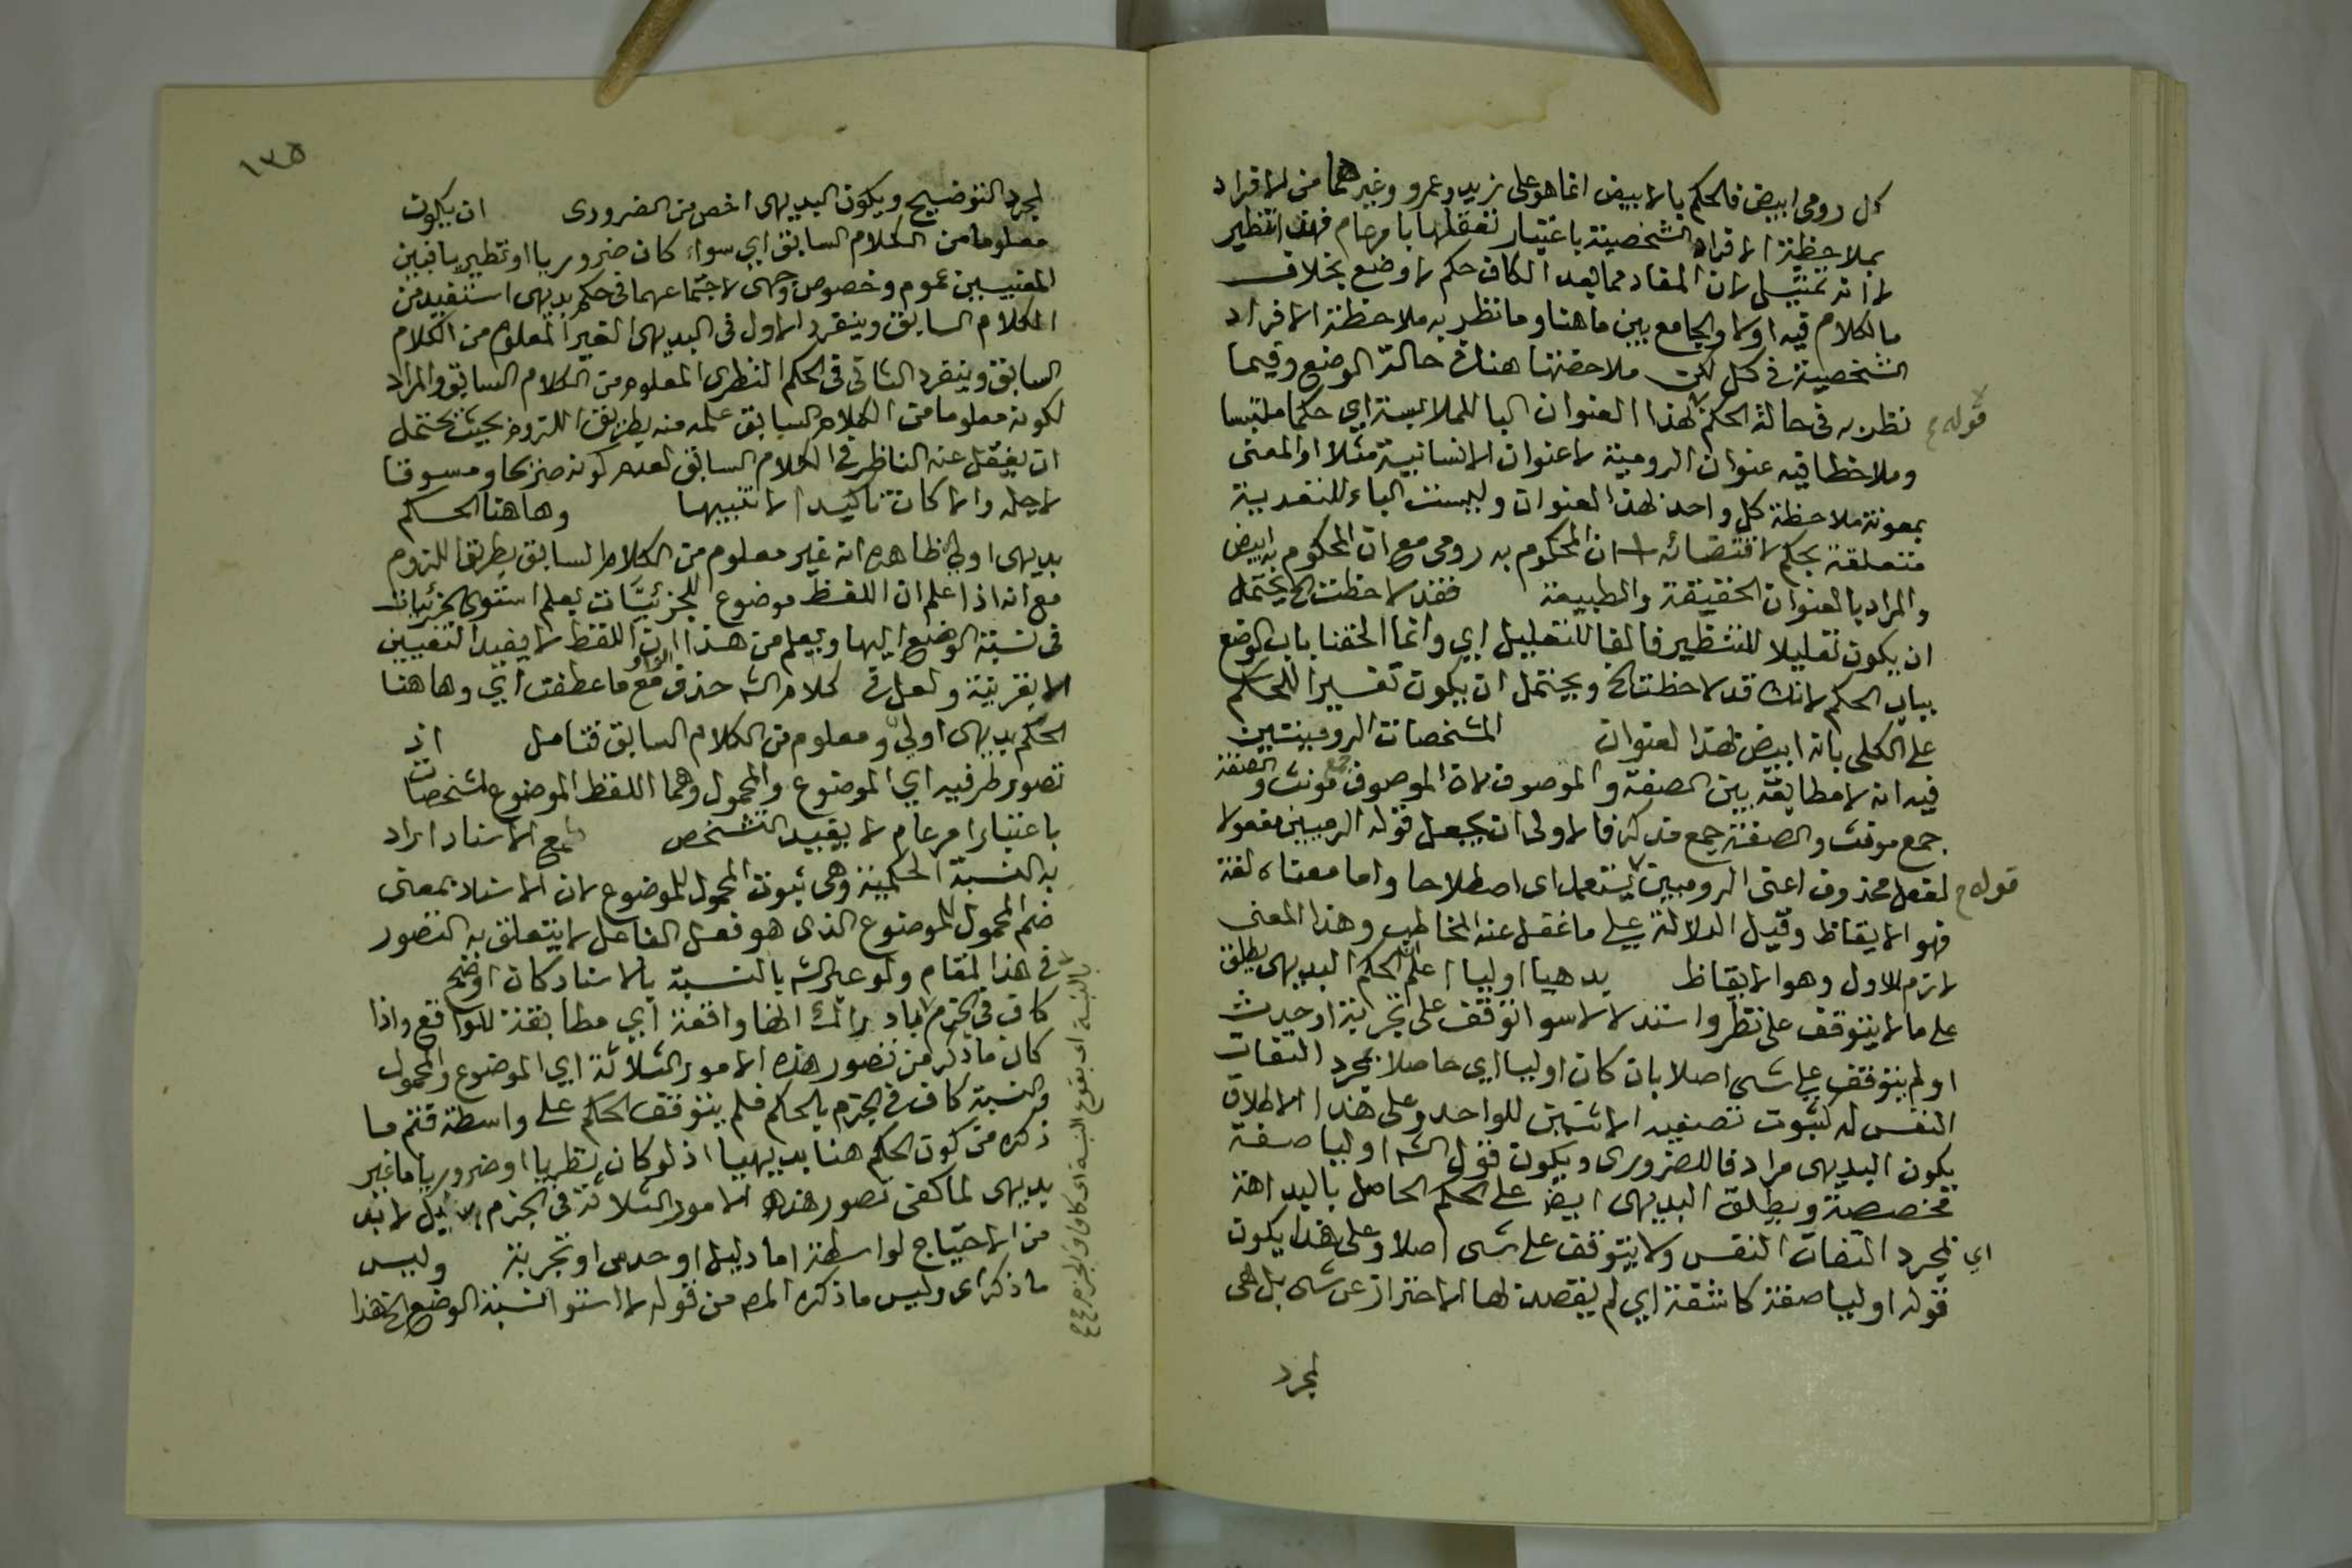 كل رومى ابيض فالحكم بالابيض انما هو على زيد وعمرو وغيرهما من الافراد
بملاحظة الافراد الشخصية باعتبار تعقلها بامر عام فهذا تنظير
لا انه تمثيل لان المقاد مما بعد الكاف حكم لا وضع بخلاف
ما الكلام فيه اولا والجامع بين ما هنا وما نظر به ملاحظة الافراد
الشخصية فى كل لكن ملاحضتها هناك حالة الوضع وفيما
نظر به فى حالة الحكم لهذا العنوان البا للملابسة اي حكما ملتبسا
قوله
وملاحظا فيه عنوان الرومية لا عنوان الانسانية مثلا او المعنى
بمعونة ملاحظة كل واحد لهذا العنوان وليست الباء للتعدية
متعلقة بحكم لاقتضائه ان المحكوم به رومى مع ان المحكوم به ابيض
والمراد بالعنوان الحقيقة والطبيعة فقد لاحظت الخ يحتمل
ان يكون تعليلا للتنظير فالفا للتعليل اي وانما الحقنا باب الوضع
بباب الحكم لانك قد لاحظت الخ ويحتمل ان يكون تفسيرا للحكم
على الكلى بانه ابيض لهذا العنوان المشخصات الروميتين
فيه انه لا مطابقة بين الصفة والموصوف لان الموصوف جمع مونث والصفة
جمع مونث والصفة جمع مذكر فالاولى ان يجعل قوله الرميين مفعولا
لفعل محذوف اعنى الروميين يستعمل اى اصطلاحا واما معناه لغة
قوله
فهو الايقاظ وقيل الدلالة على ما غفل عنه المخاطب وهذا المعنى
لازم الاول وهو الايقاظ بدهيا اوليا اعلم ان الحكم البديهى يطلق
على ما لا يتوقف على نظر واستدلال سوا توقف على تجربة او حدث
او لم يتوقف على شى اصلا بان كان اوليا اي حاصلا بمجرد التفات
النفس له لثبوت تصنيف الاثنين للواحد وعلى هذا الاطلاق
يكون البديهى مرادفا للضرورى ويكون قول الشه اوليا صفة
مخصصة ويطلق البديهى ايضا على الحكم الحاصل بالبداهة
اي لمجرد التفات النفس ولا يتوقف على شى اصلا وعلى هذا يكون
قوله اوليا صفة كاشفة اي لم يقصد لها الاحتراز عن شى بل هى
لمجرد
١٣٥
لمجرد التوضيح ويكون البديهى اخص من الضرورى ان يكون
معلوما من الكلام السابق اي سواء كان ضروريا او نظيريا فبين
المعنيين عموم وخصوص وجهى لاجتماعهما فى حكم بديهى استفيد من
الكلام السابق وينفرد الاول فى البديهى الغير المعلوم من الكلام
السابق وينفرد الثانى فى الحكم النظرى المعلوم من الكلام السابق والمراد
لكونه معلوما من الكلام السابق علمه منه بطريق اللزوم بحيث يحتمل
ان يغفل عنه الناظر فى الكلام السابق لعدم كونه صريحا ومسوقا
لاجله والا كان تاكيدا لا تنبيها وهاهنا الحكم
بديهى اولى ظاهره انه غير معلوم من الكلام السابق بطريق اللزوم
مع انه اذا علم ان اللفظ موضوع للجزئيات يعلم استوى الجزئيات
فى نسبة الوضع اليها ويعلم من هذا ان اللفظ لا يفيد التعيين
الا بقرينة ولعل فى كلام الشه حذف الواو مع ما عطفت اي وهاهنا
الحكم بديهى اولى ومعلوم من الكلام السابق فتامل اذ
تصور طرفيه اي الموضوع والمحمول وهما اللفظ الموضوع لمشخصات
باعتبار امر عام لا يفيد التشخص مع الاسناد اراد
به النسبة الحكمية وهى ثبوت المحمول للموضوع لان الاسناد بمعنى
ضم المحمول للموضوع الذى هو فعل الفاعل لا يتعلق به التصور
فى هذا المقام ولو عبر الشه بالنسبة بالاسناد كان اوضح
كاف فى الجزم اي ادراك انها واقعة اي مطابقة للواقع واذا
كان ما ذكر من تصور هذه الامور الثلاثة اي الموضوع والمحمول
والنسبة كاف فى الجزم بالحكم فلم يتوقف الحكم على واسطة فتم ما
ذكره من كون الحكم هنا بديهيا اذ لو كان نظريا او ضروريا ما غير
بديهى لما كفى تصور هذه الامور الثلاثة فى الجزم بل لا بد
من الاحتياج لواسطة اما دليل او حدس او تجربة وليس
ما ذكر اى وليس ما ذكره المصه من قوله لا استو النسبة الوضع الخ هذا
بالنسبة اى بقوع النسبة اى كاف فى الجزم